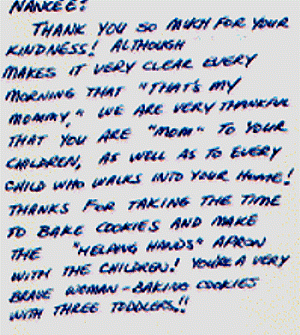 NANCEE:
THANK YOU SO MUCH FOR YOUR
KINDNESS! ALTHOUGH
MAKES IT VERY CLEAR EVERY
MORNING THAT "THAT'S MY
MOMMY," WE ARE VERY THANKFUL
THAT YOU ARE "MOM" TO YOUR
CHILDREN, AS WELL AS TO EVERY
CHILD WHO WALKS INTO YOUR HOME!
THANKS FOR TAKING THE TIME
TO BAKE COOKIES AND MAKE
THE "HELPING HANDS" APRON
WITH THE CHILDREN! YOU'RE A VERY
BRAVE WOMAN-BAKING COOKIES
WITH THREE TODDLERS!!